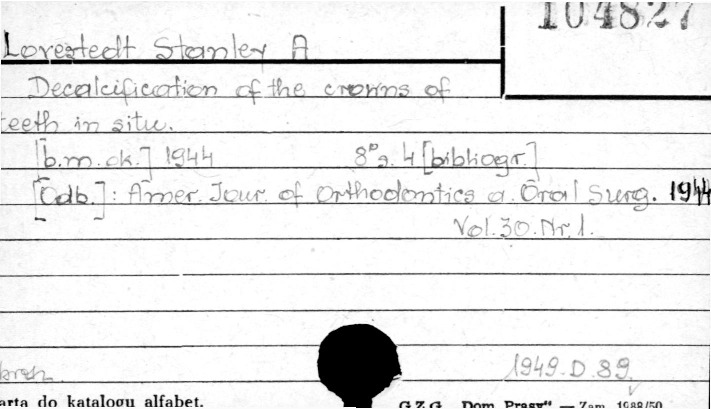 104827
Lovestedt Stanley A
Decalcification of the crowns of
teeth in situ.
[b.m.ck.] 1944 8° s. 4 [bibliogr.]
[Odb.]: Amer. Jour. of Orthodontics a. Oral Surg. 1944
Vol. 30. Nr. 1.
1949.D.89.
arta do katalogu alfabet. G.Z.G. „Dom Prasy" — Zam. 1988/50